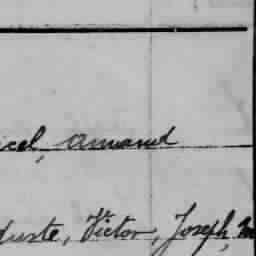 icel, Armand
guste, Victor, Joseph, M